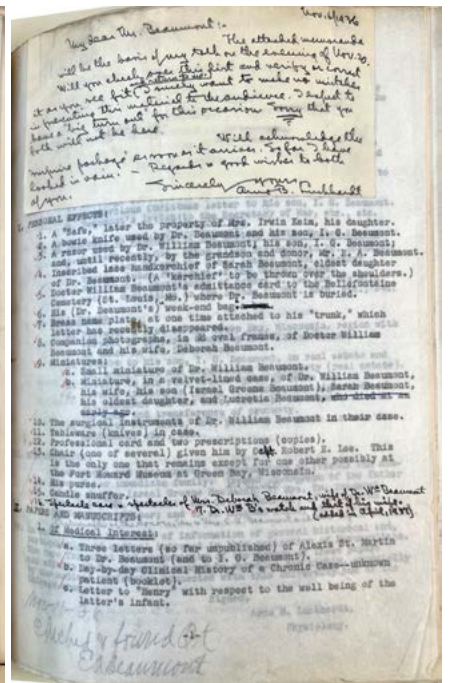 Nov. 6/1936
My dear Mr. Beaumont:-
The attached memoranda
will be the basis of my talk on the evening of Nov. 20.
Will you check over this list and verify or correct
it as you see fit. I surely want to make no mistakes
in presenting this material to the audience. I expect to
have a "big turn out" for this occasion. Sorry that you
both will not be here.
Will acknowledge the
"surprise package" as soon as it arrives. So far I have
looked in vain. - Regards & good wishes to both
of you.
Sincerely yours
Arno B. Luckhardt
I. PERSONAL EFFECTS:
1. A "Safe," later the property of Mrs. Irwin Keim, his
2. A bowie knife used by Dr. Beaumont and his son, I. G. Beaumont.
3. A razor used by Dr. William Beaumont; his son, I. G. Beaumont;
and, until recently, by the grandson and donor, Mr. E. A. Beaumont.
4. Inscribed lace handkerchief of Sarah Beaumont, oldest daughter
of Dr. Beaumont. (A "kerchief" to be thrown over the shoulders.)
5. Doctor William Beaumont's admittance card to the Bellefontaine
Cemetery (St. Louis, Mo.) where Dr. Beaumont is buried.
6. His (Dr. Beaumont's) week-end bag.
7. Brass name plate at one time attached to his "trunk," which
latter has recently disappeared.
8. Companion photographs, in old oval frames, of Doctor William
Beaumont and his wife, Deborah Beaumont.
9. Miniatures:
a. Small miniature of Dr. William Beaumont.
b. Miniature, in a velvet-lined case, of Dr. William Beaumont,
his wife, his son (Israel Greene Beaumont), Sarah Beaumont,
his oldest daughter, and Lucretia Beaumont, who died at an
early age.
10. The surgical instruments of Dr. William Beaumont in their case.
11. Tableware (knives) in case.
12. Professional card and two prescriptions (copies).
13. Chair (one of several) given him by Capt. Robert E. Lee. This
is the only one that remains except for one other possibly at
the Fort Howard Museum at Green Bay, Wisconsin.
14. His purse.
15. Candle snuffer.
16. Spectacle case & spectacles of Mrs. Deborah Beaumont, wife of Dr. Wm Beaumont
17. Dr. Wm B's watch and
(added in April, 1937)
II. PAPERS MANUSCRIPTS:
1. Of Medical Interest:
a. Three letters (so far unpublished) of Alexis St. Martin
to Dr. Beaumont (and to I. G. Beaumont).
b. Day-by-day Clinical History of a Chronic Case--unknown
patient (booklet).
c. Letter to "Henry" with respect to the well being of the
latter's infant.
Checked & found OK
EA Beaumont
-2-